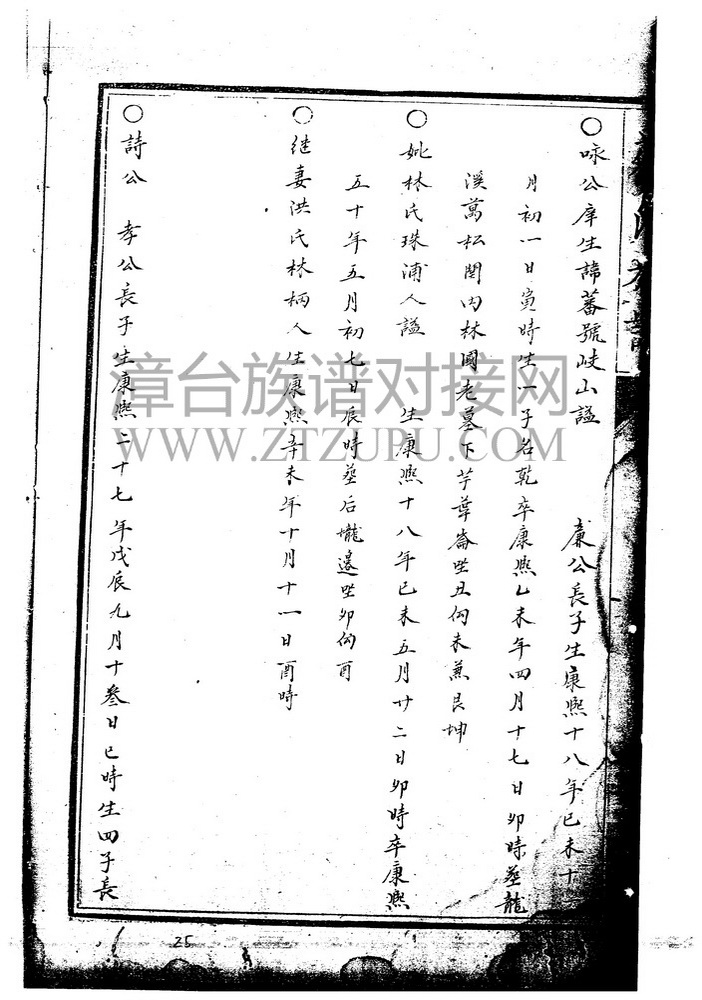 ○咏公庠生諱蕃號岐山謚 廉公長子生康熙十八年己未十
月初一日寅時生一子名乾卒康熙乙未年四月十七日卯時葬龍
溪萬松関内林國老墓下芋葉崙坐丑向未兼艮坤
○妣林氏珠浦人謚 生康熙十八年己未五月廿二日卯時卒康熙
五十年五月初七日辰時葬后壠邊坐卯向酉
○继妻洪氏林柄人生康熙辛未年十月十一日酉時
○詩公 孝公長子生康熙二十七年戊辰九月十叁日巳時生四子長
漳台族谱对接网
WWW.ZTZUPU.COM
25